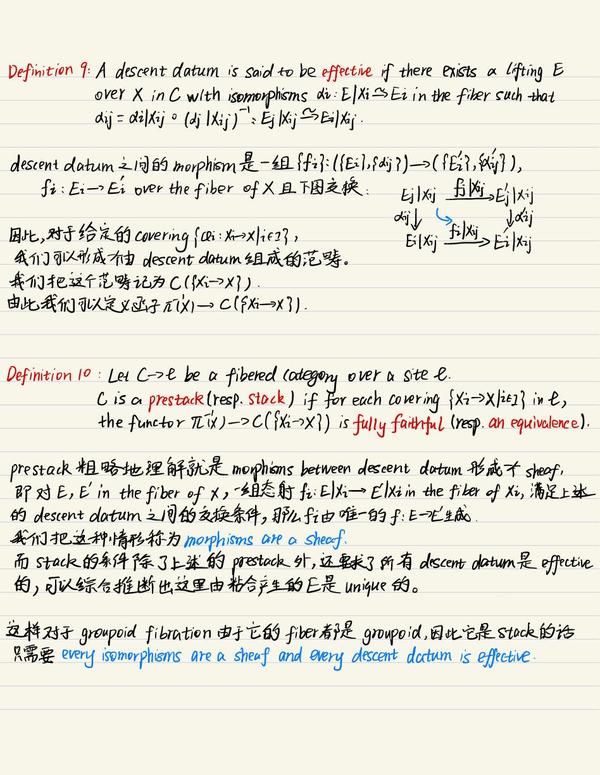 Definition 9: A descent datum is said to be effective if there exists a lifting E
over X in C with isomorphisms αi: E|Xi ≅ Ei in the fiber such that
αij = αi|Xij ∘ (αj|Xij)⁻¹: Ej|Xij ≅ Ei|Xij.
descent datum 之间的 morphism 是一组 {fi}: ({Ei},{αij}) → ({Ei'},{αij'}),
fi: Ei → Ei' over the fiber of X 且下图交换:
Ej|Xij fj|Xij Ej'|Xij
αij αij'
Ei|Xij fi|Xij Ei'|Xij
因此,对于给定的 covering {φi: Xi→X|i∈I},
我们可以形成个由 descent datum 组成的范畴。
我们把这个范畴记为 C({Xi→X}).
由此我们可以定义函子 π⁻¹(X) → C({Xi→X}).
Definition 10: Let C→ℓ be a fibered category over a site ℓ.
C is a prestack (resp. stack) if for each covering {Xi→X|i∈I} in ℓ,
the functor π⁻¹(X) → C({Xi→X}) is fully faithful (resp. an equivalence).
prestack 粗略地理解就是 morphisms between descent datum 形成个 sheaf,
即对 E, E' in the fiber of X, 一组态射 fi: E|Xi → E'|Xi in the fiber of Xi, 满足上述
的 descent datum 之间的交换条件,那么 fi 由唯一的 f: E→E' 生成.
我们把这种情形称为 morphisms are a sheaf.
而 stack 的条件除了上述的 prestack 外,还要求了所有 descent datum 是 effective
的,可以综合推断出这里由粘合产生的 E 是 unique 的。
这样对于 groupoid fibration 由于它的 fiber 都是 groupoid,因此它是 stack 的话
只需要 every isomorphisms are a sheaf and every descent datum is effective.